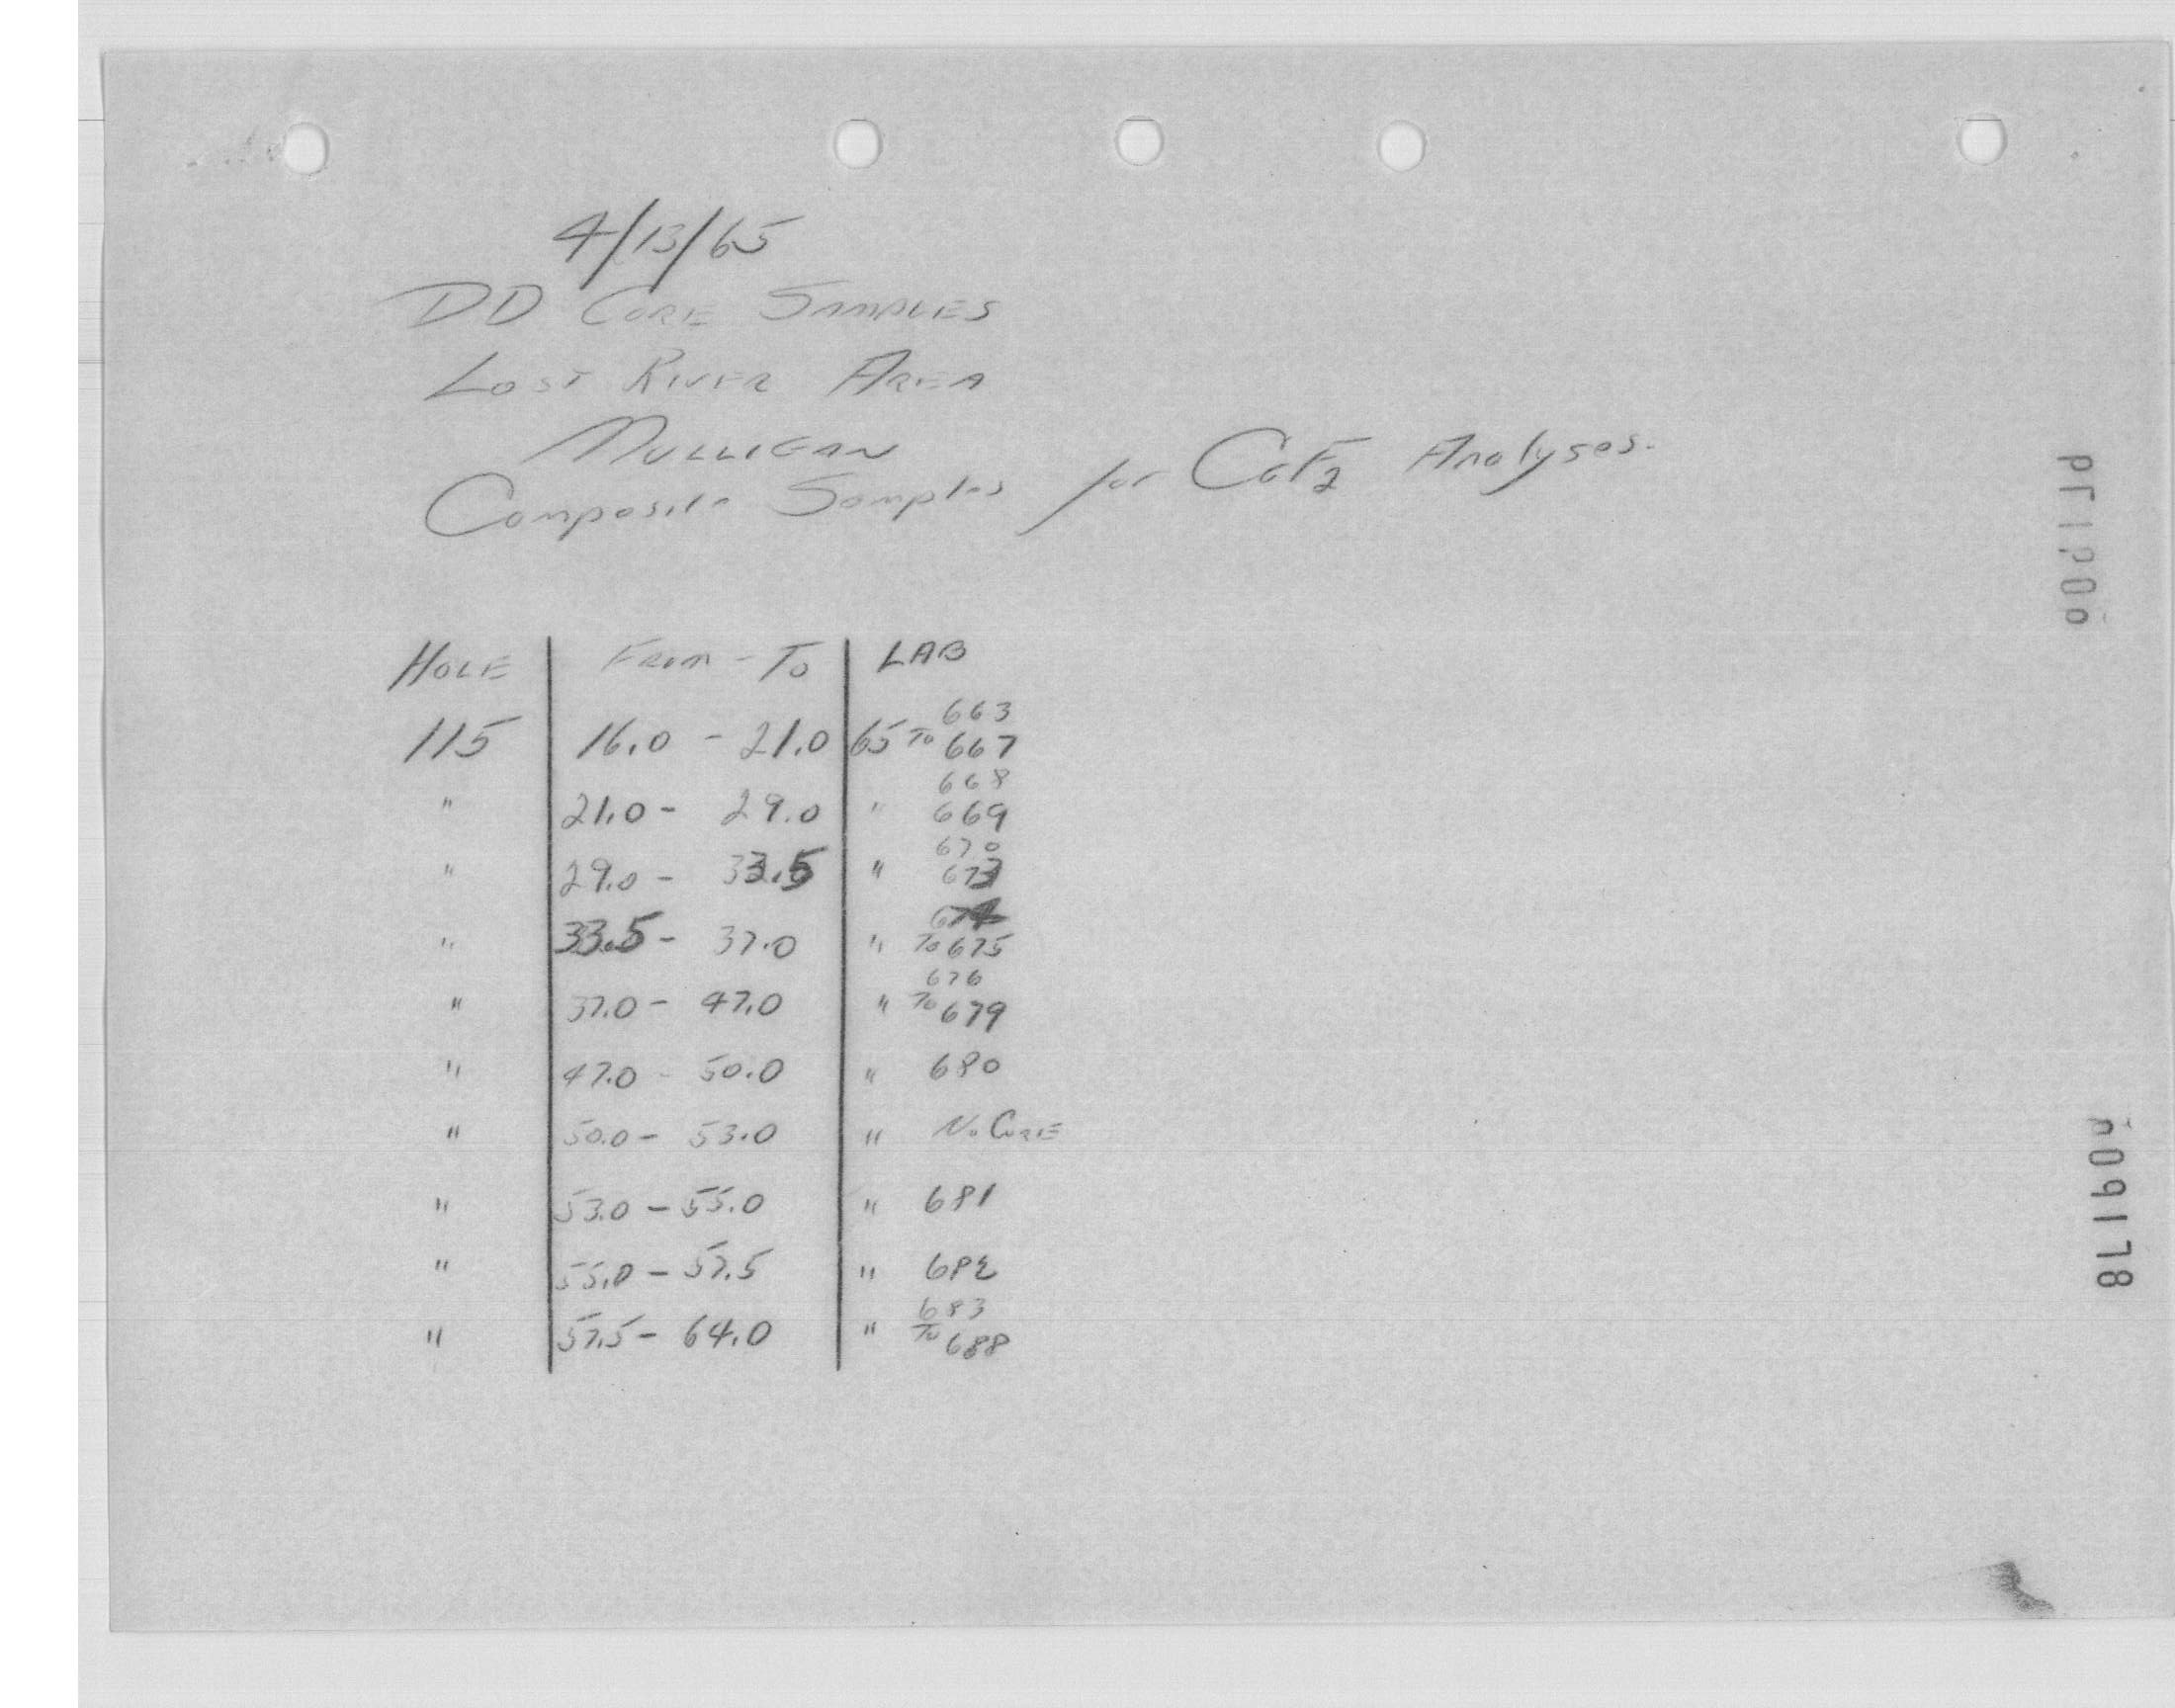 4/13/65
DD CORE SAMPLES
LOST RIVER AREA
MULLIGAN
Composite Samples for CaF2 Analyses.
HOLE FROM - TO LAB
663
115 16.0 - 21.0 65 TO 667
668
" 21.0 - 29.0 " 669
670
" 29.0 - 33.5 " 673
674
" 33.5 - 37.0 " TO 675
676
" 37.0 - 47.0 " TO 679
" 47.0 - 50.0 " 680
" 50.0 - 53.0 " No CORE
" 53.0 - 55.0 " 681
" 55.0 - 57.5 " 682
683
" 57.5 - 64.0 " TO 688
009178